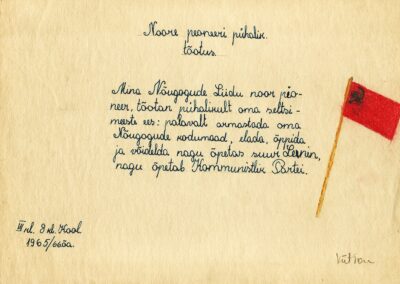 Noore pioneeri pühalik
tõotus.
Mina Nõugogude Liidu noor pio-
neer, tõotan pühalikult oma seltsi-
meeste ees: palavalt armastada oma
Nõugogude kodumaad, elada, õppida
ja võidelda nagu õpetas suur Lenin,
nagu õpetab Kommunistlik Partei.
9 kl. Kool
1965/66õa.